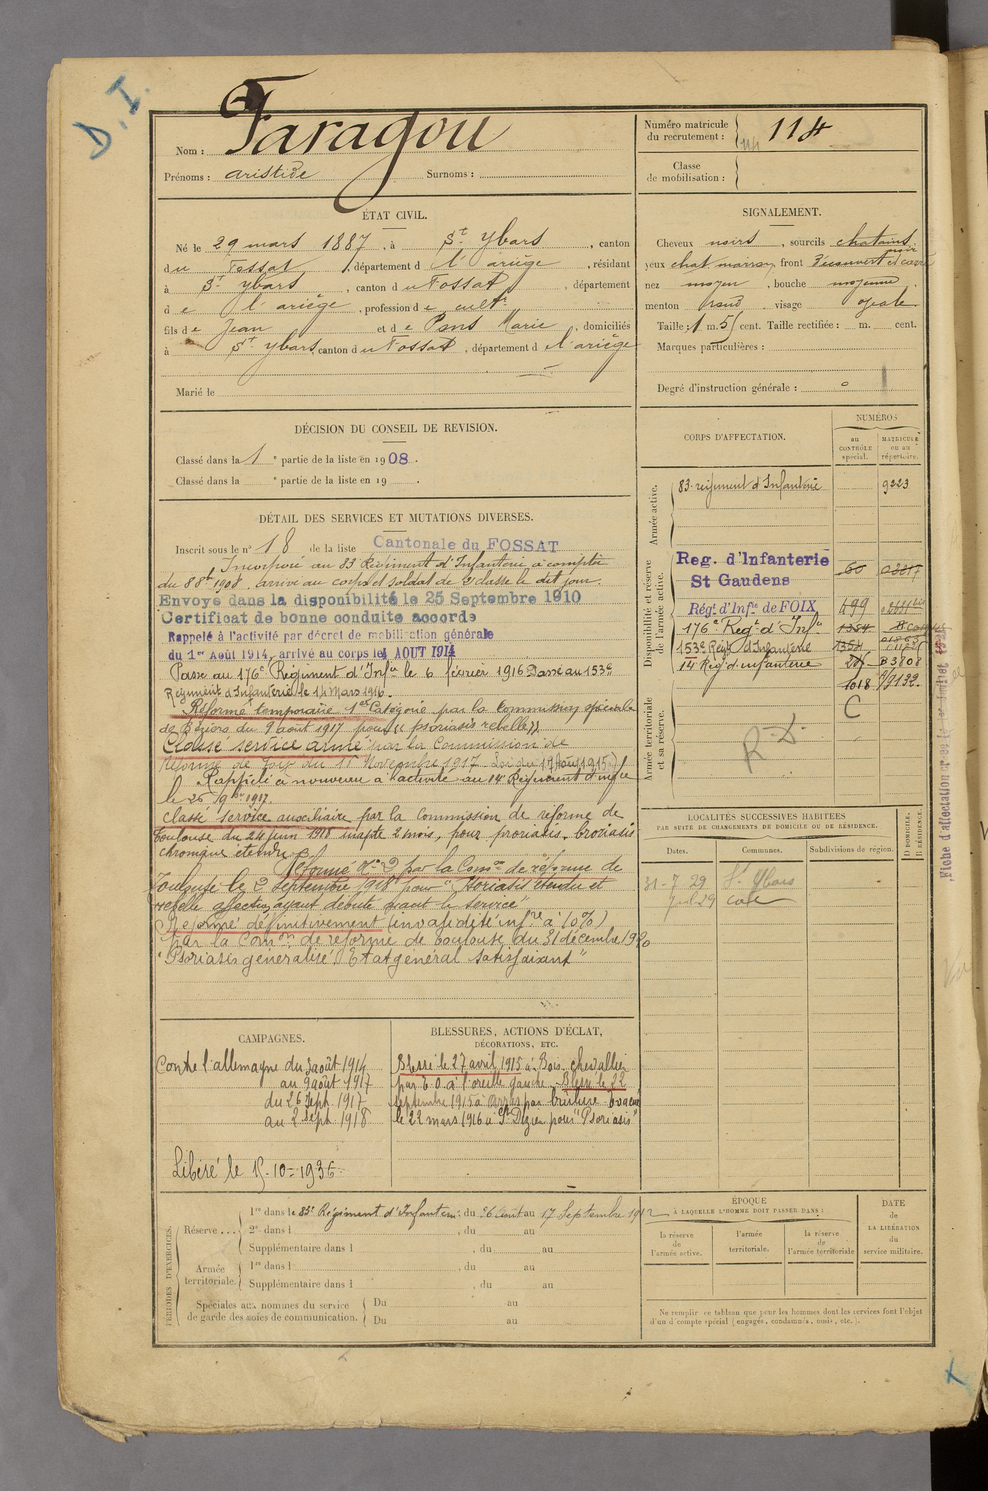 D. I.
Nom : Faragou
Prénoms : aristide Surnoms :
Numéro matricule du recrutement : 114
Classe de mobilisation :
ÉTAT CIVIL.
Né le 29 mars 1887, à St Ybars, canton
du Fossat, département de l'ariège, résidant
à St Ybars, canton du Fossat, département
de l'ariège, profession de cultr
fils de Jean et de Pons Marie, domiciliés
à St Ybars, canton du Fossat, département de l'ariège
Marié le
SIGNALEMENT.
Cheveux noirs, sourcils chatains
yeux chat marron, front découvert et carré
nez moyen, bouche moyenne
menton rond visage ovale
Taille : 1 m. 51 cent. Taille rectifiée : m. cent.
Marques particulières :
Degré d'instruction générale : 0
DÉCISION DU CONSEIL DE REVISION.
Classé dans la 1e partie de la liste en 1908.
Classé dans la e partie de la liste en 19 .
DÉTAIL DES SERVICES ET MUTATIONS DIVERSES.
Inscrit sous le n° 18 de la liste Cantonale du FOSSAT
Incorporé au 83 Régiment d'Infanterie à compter
du 8 8bre 1908. arrivé au corps et soldat de 2e classe le dit jour.
Envoyé dans la disponibilité le 25 Septembre 1910
Certificat de bonne conduite accordé
Rappelé à l'activité par décret de mobilisation générale
du 1er Août 1914, arrivé au corps le 4 AOUT 1914
Passé au 176e Régiment d'Infie le 6 février 1916 Passé au 153e
Régiment d'Infanterie le 14 Mars 1916.
Réformé temporaire 1ere Catégorie par la Commission spéciale
de Béziers du 9 août 1917 pour « psoriasis rebelle ».
Classé service armé par la Commission de
Réforme de Foix du 11 Novembre 1917 Loi du 17 Août 1915.
Rappelé à nouveau à l'activité au 14 Régiment d'infie
le 26 9bre 1917.
Classé service auxiliaire par la Commission de réforme de
Toulouse du 24 juin 1918 inapte 2 mois, pour psoriasis
chronique étendu
Réformé N° 2 par la Comon de réforme de
Toulouse le 2 Septembre 1918 pour "Psoriasis étendu et
rebelle affection ayant débuté avant le service"
Réformé définitivement (invalidité infre à 10%)
par la Comon de réforme de Toulouse du 31 décembre 1920
"Psoriasis généralisé Etat général satisfaisant"
CORPS D'AFFECTATION.
NUMÉROS
au CONTRÔLE spécial.
MATRICULE ou au répertoire.
Armée active.
83e régiment d'Infanterie 9223
Disponibilité et réserve de l'armée active.
Reg. d'Infanterie St Gaudens 60
Régt d'Infie de FOIX 499
176e Regt d'Infie 1354
153e Régt d'Infanterie 1354
14 Reg d'infanterie 83808
1018
Armée territoriale et sa réserve.
C
R-D.
Fiche d'affectation
LOCALITÉS SUCCESSIVES HABITÉES
PAR SUITE DE CHANGEMENTS DE DOMICILE OU DE RÉSIDENCE.
Dates. Communes. Subdivisions de région. D. DOMICILE. R. RÉSIDENCE.
31-7 29 St Ybars
CAMPAGNES.
Contre l'allemagne du 3 août 1914
au 9 août 1917
du 26 Sept. 1917
au 2 Sept. 1918
Libéré le 15-10-1936.
BLESSURES, ACTIONS D'ÉCLAT,
DÉCORATIONS, ETC.
Blessé le 27 avril 1915 à Bois chevallier
par E.O. à l'oreille gauche. Blessé le 22
septembre 1915 à Arras par brûlure. Evacué
le 22 mars 1916 à St Dizier pour "Psoriasis"
PÉRIODES D'EXERCICES.
Réserve...
1re dans le 83e Régiment d'Infanterie du 26 Août au 17 Septembre 1912
2e dans l , du au
Supplémentaire dans l , du au
Armée territoriale.
1re dans l , du au
Supplémentaire dans l , du au
Spéciales aux hommes du service de garde des voies de communication.
Du au
Du au
ÉPOQUE
À LAQUELLE L'HOMME DOIT PASSER DANS :
la réserve de l'armée active.
l'armée territoriale.
la réserve de l'armée territoriale
DATE de LA LIBÉRATION du service militaire.
Ne remplir ce tableau que pour les hommes dont les services font l'objet
d'un décompte spécial (engagés, condamnés, omis, etc.).